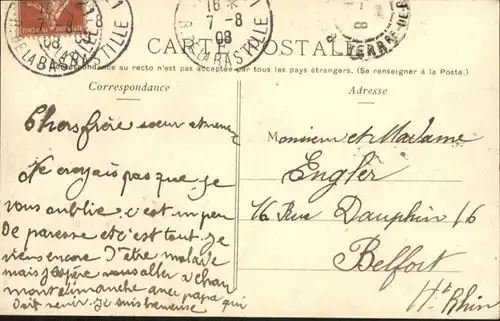 16 *
7-8
08
B. DE LA BASTILLE
CARTE POSTALE
La Correspondance au recto n'est pas acceptée par tous les pays étrangers. (Se renseigner à la Poste.)
Correspondance
Chers frère soeur et neveu
Ne croyais pas que je
vous oublie c'est un peu
de paresse et c'est tout. je
viens encore d'être malade
mais j'espère vous aller
dimanche avec papa qui
doit venir. je suis heureuse
Adresse
Monsieur et Madame
Engler
16 Rue Dauphin 16
Belfort
Ht Rhin